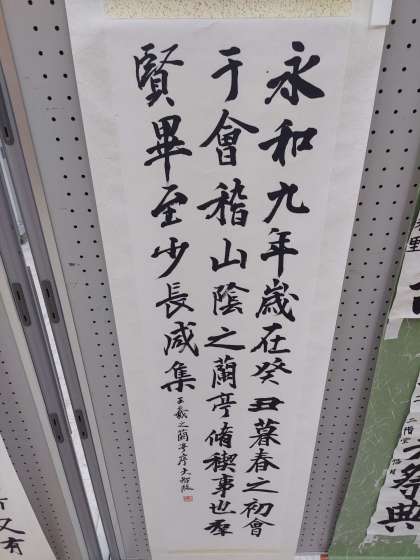 永和九年歲在癸丑暮春之初會
于會稽山陰之蘭亭脩稧事也羣
賢畢至少長咸集
王羲之蘭亭序
祭典
又有